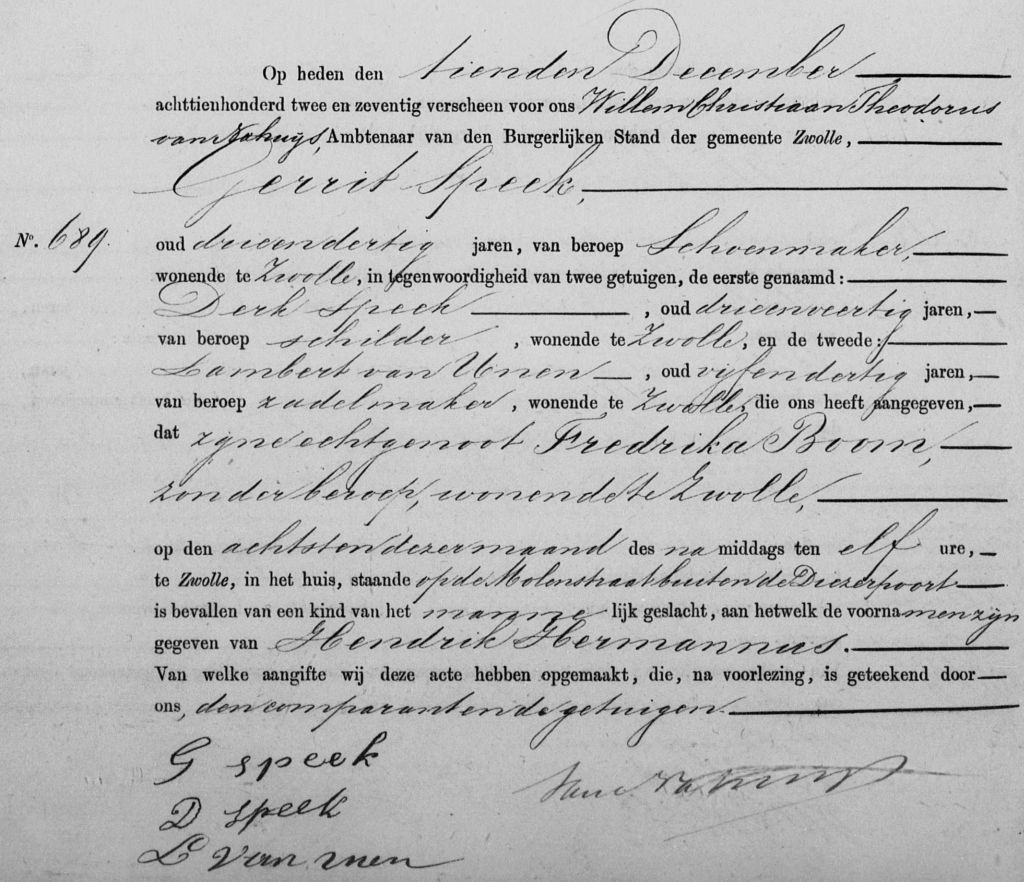 Op heden den tienden December
achttienhonderd twee en zeventig verscheen voor ons Willem Christiaan Theodorus
van Nahuys, Ambtenaar van den Burgerlijken Stand der gemeente Zwolle,
Gerrit Speek,
No. 689. oud drieendertig jaren, van beroep Schoenmaker,
wonende te Zwolle, in tegenwoordigheid van twee getuigen, de eerste genaamd:
Derk Speek, oud drieenveertig jaren,
van beroep schilder, wonende te Zwolle, en de tweede:
Lambert van Unen, oud vijfendertig jaren,
van beroep zadelmaker, wonende te Zwolle, die ons heeft aangegeven,
dat zyne echtgenoot Fredrika Boom,
zonder beroep, wonende te Zwolle,
op den achtsten dezer maand des na middags ten elf ure,
te Zwolle, in het huis, staande op de Molenstraat buiten de Diezerpoort
is bevallen van een kind van het manne lijk geslacht, aan hetwelk de voornamen zyn
gegeven van Hendrik Hermannus.
Van welke aangifte wij deze acte hebben opgemaakt, die, na voorlezing, is geteekend door
ons, den comparant en de getuigen.
G speek
D speek
L van unen